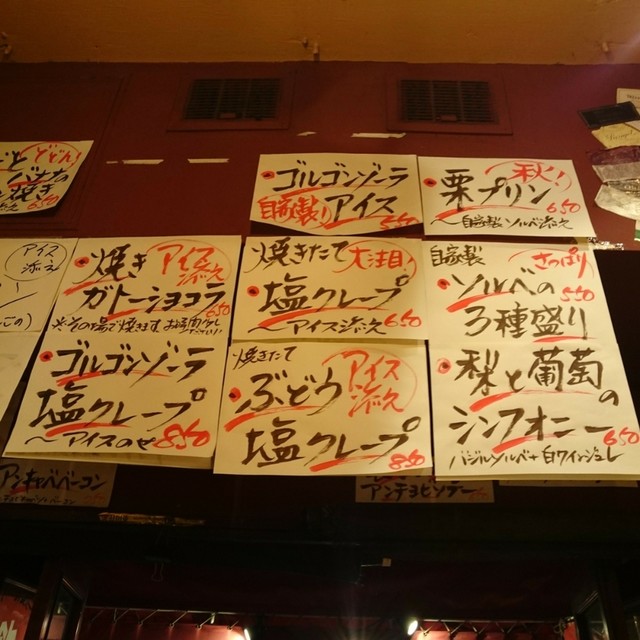 どどん!
焼き
650
ゴルゴンゾーラ
自家製
アイス
550
秋!
栗プリン
650
〜自家製ソルベ添え
アイス
添え
焼き
アイス
添え
ガトーショコラ
650
ゴルゴンゾーラ
塩クレープ
〜アイスのせ
850
焼きたて
大注目!
塩クレープ
〜アイス添え
650
焼きたて
アイス
添え
ぶどう
塩クレープ
850
自家製
さっぱり
ソルベの
550
3種盛り
梨と葡萄
の
シンフォニー
650
バジルソルベ+白ワインジュレ
アンキャベベーコン